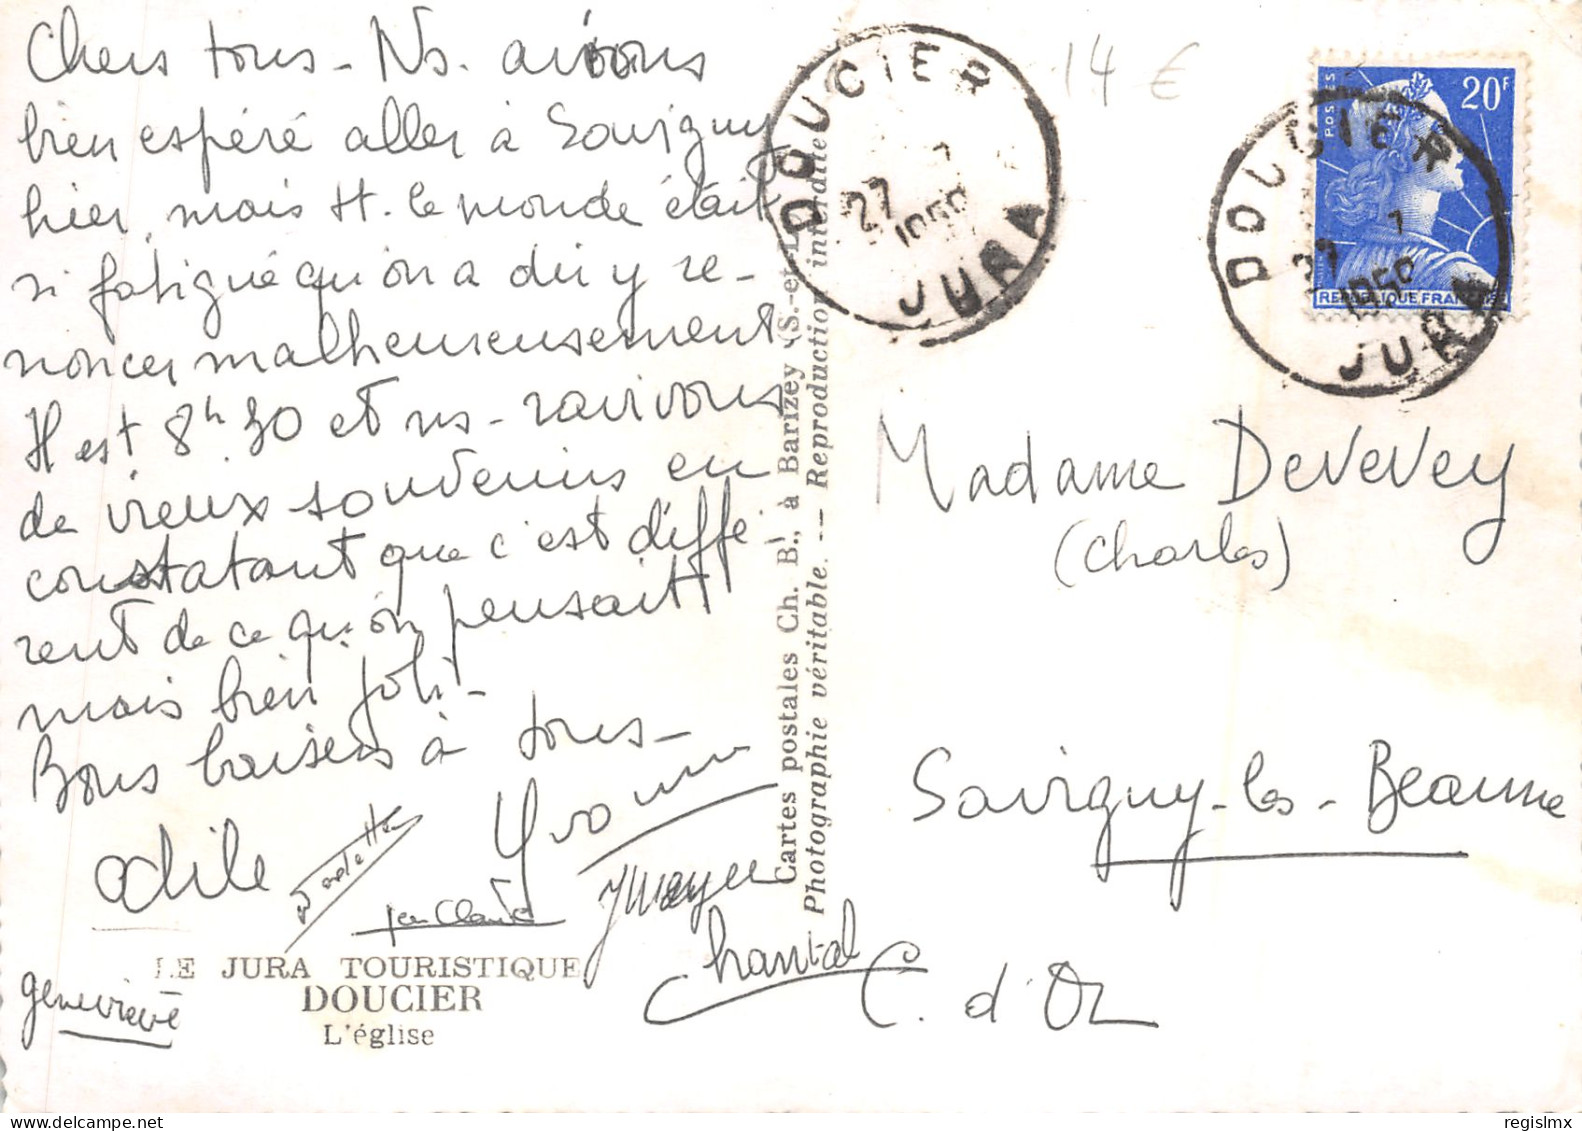 Chers tous - Ns. avions
bien espéré aller à Savigny
hier, mais tt. le monde était
si fatigué qu'on a dû y re-
noncer malheureusement
Il est 8h30 et ns - ravivons
de vieux souvenirs en
constatant que c'est diffé
rent de ce qu'on pensait
mais bien joli -
Bons baisers à tous -
Odile
Yvonne
Jean Claude
Chantal
geneviève
LE JURA TOURISTIQUE
DOUCIER
L'église
Cartes postales Ch. B., à Barizey (S.-et-L.)
Photographie véritable. -- Reproduction interdite
DOUCIER
27 7
1959
JURA
14 €
POSTES
20F
REPUBLIQUE FRANCAISE
DOUCIER
27 7
1959
JURA
Madame Devevey
(Charles)
Savigny-les-Beaune
C. d'Or
regislmx